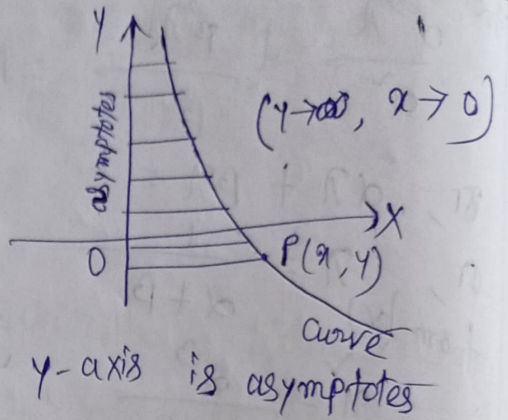 Y
asymptotes
(y→∞, x→0)
X
O
P(x, y)
curve
y-axis is asymptotes